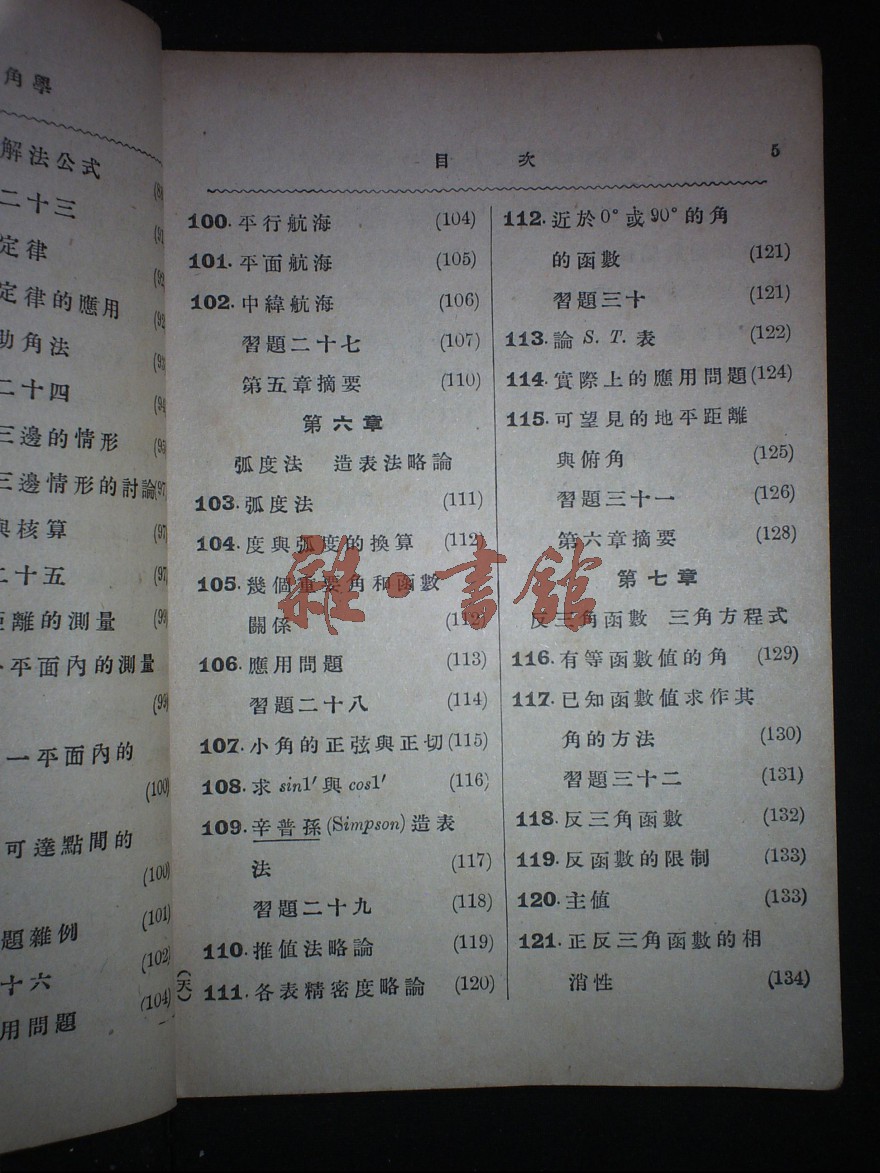 角學
解法公式
二十三
定律
定律的應用
助角法
二十四
三邊的情形
三邊情形的討論(97)
與核算 (97)
二十五 (97)
距離的測量
平面內的測量
一平面內的
(100)
可達點間的
(100)
題雜例 (101)
十六 (102)
用問題 (104)
目 次 5
100.平行航海 (104)
101.平面航海 (105)
102.中緯航海 (106)
習題二十七 (107)
第五章摘要 (110)
第六章
弧度法 造表法略論
103.弧度法 (111)
104.度與弧度的換算 (112)
105.幾個重要角和函數
關係 (112)
106.應用問題 (113)
習題二十八 (114)
107.小角的正弦與正切(115)
108.求 sin1′與 cos1′ (116)
109.辛普孫(Simpson)造表
法 (117)
習題二十九 (118)
110.推值法略論 (119)
111.各表精密度略論 (120)
(天)
112.近於0°或90°的角
的函數 (121)
習題三十 (121)
113.論 S. T. 表 (122)
114.實際上的應用問題(124)
115.可望見的地平距離
與俯角 (125)
習題三十一 (126)
第六章摘要 (128)
第七章
反三角函數 三角方程式
116.有等函數值的角 (129)
117.已知函數值求作其
角的方法 (130)
習題三十二 (131)
118.反三角函數 (132)
119.反函數的限制 (133)
120.主值 (133)
121.正反三角函數的相
消性 (134)
雜·書館